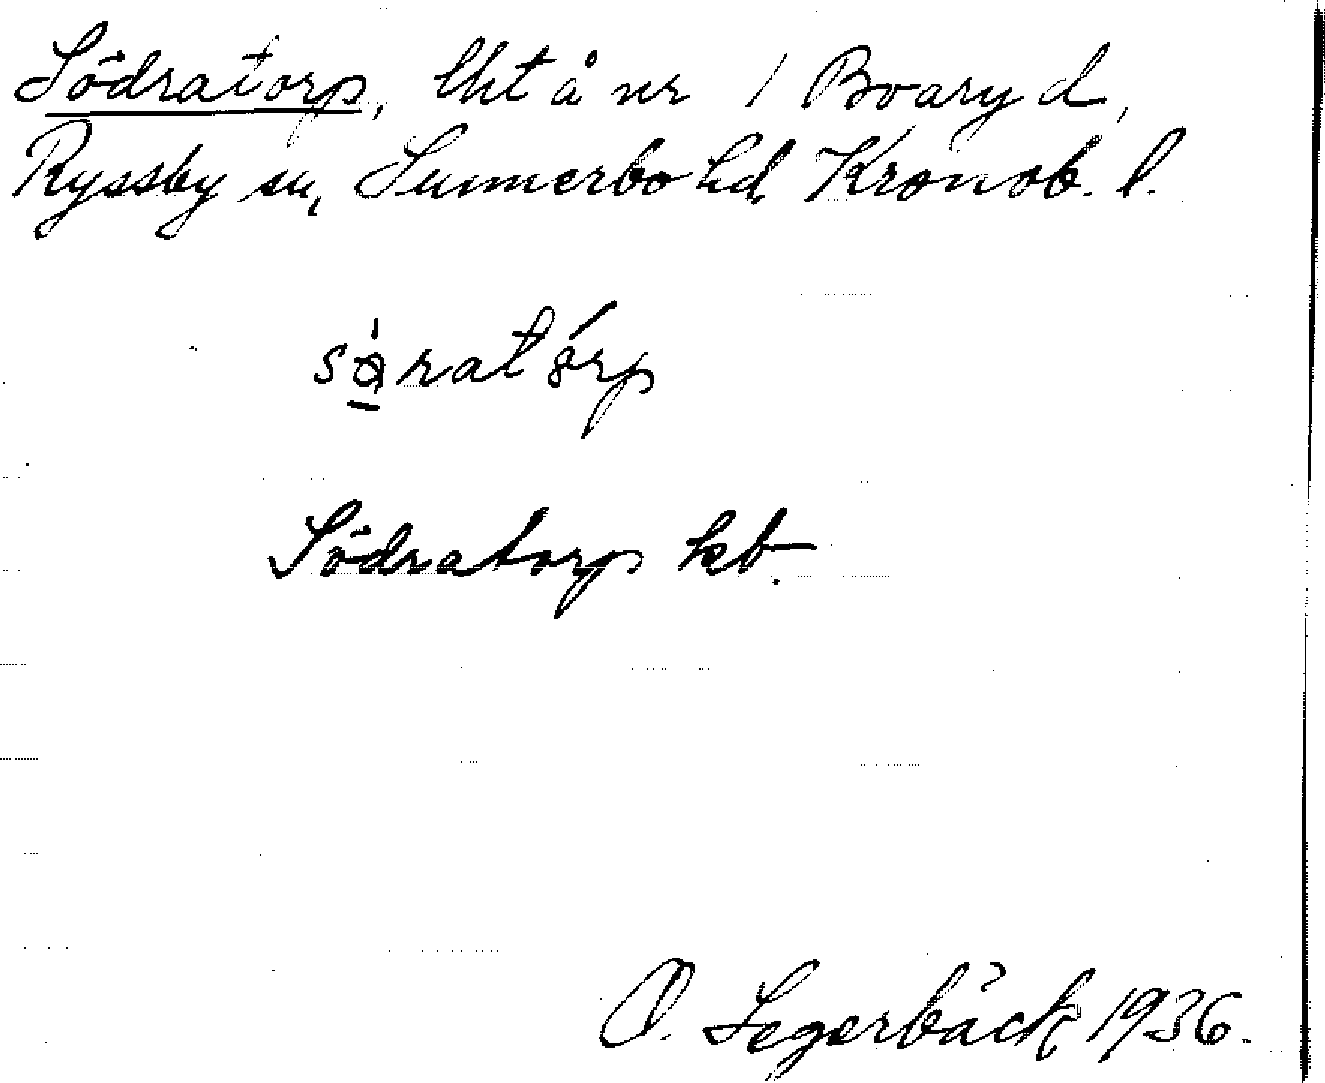 Södratorp, lht å nr 1 Boaryd,
Ryssby sn, Sunnerbo hd, Kronob. l.
Södratorp kb.
O. Segerbäck 1936.